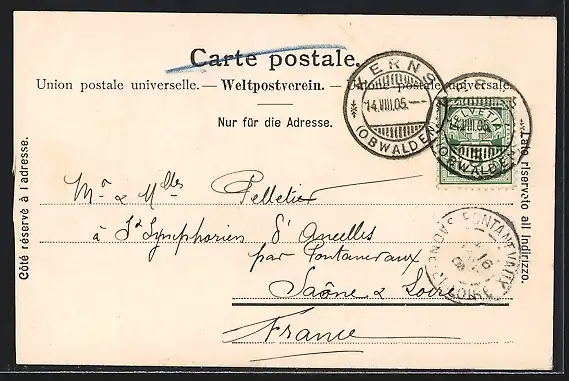 Carte postale.
Union postale universelle. — Weltpostverein. — Unione postale universale.
Nur für die Adresse.
Côté réservé à l adresse.
Lato riservato all Indirizzo.
KERNS
14.VIII.05.
(OBWALDEN)
KERNS
14.VIII.05.
(OBWALDEN)
HELVETIA
Mr & Mlles Pelletier
à St Symphorien d'Ancelles
par Pontanevaux
Saône & Loire
France
PONTANEVAUX
16
SAONE-ET-LOIRE